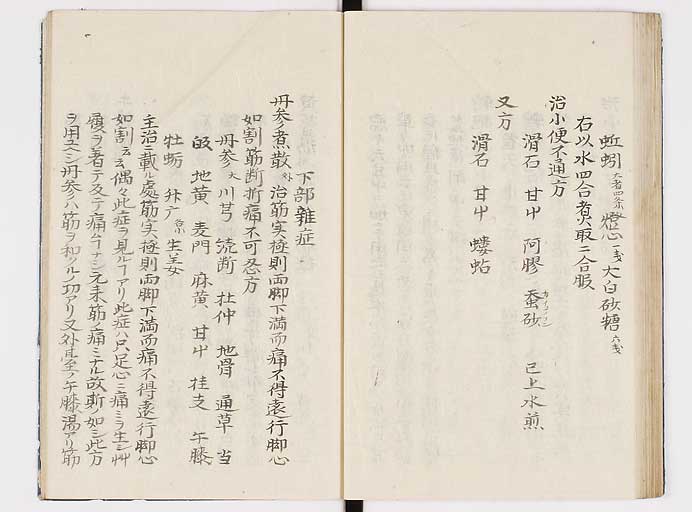 蚯蚓大者四条 燈心一戔 大白砂糖六戔
右以水四合煮取二合服
治小便不通方
滑石 甘艸 阿膠 蚕砂 已上水煎
又方
滑石 甘艸 螻蛄
下部雜症
丹参煮散 外 治筋実極則両脚下満而痛不得遠行脚心
如割筋断折痛不可忍方
丹参大 川芎 続断 杜仲 地骨 通草 当
皈 地黄 麦門 麻黄 甘艸 桂支 牛膝
牡蛎 升广 生姜
主治ニ載ル處筋実極則両脚下満而痛不得遠行脚心
如割ト云偶々此症ヲ見ルヿアリ此症ハ只足心ニ痛ミヲ生シ艸
履ヲ著テ及テ痛ムヿナシ元来筋ノ痛ミナル故斯如シ此方
ヲ用ユヘシ丹参ハ筋ヲ和ツルノ功アリ又外臺ノ牛膝湯アリ筋